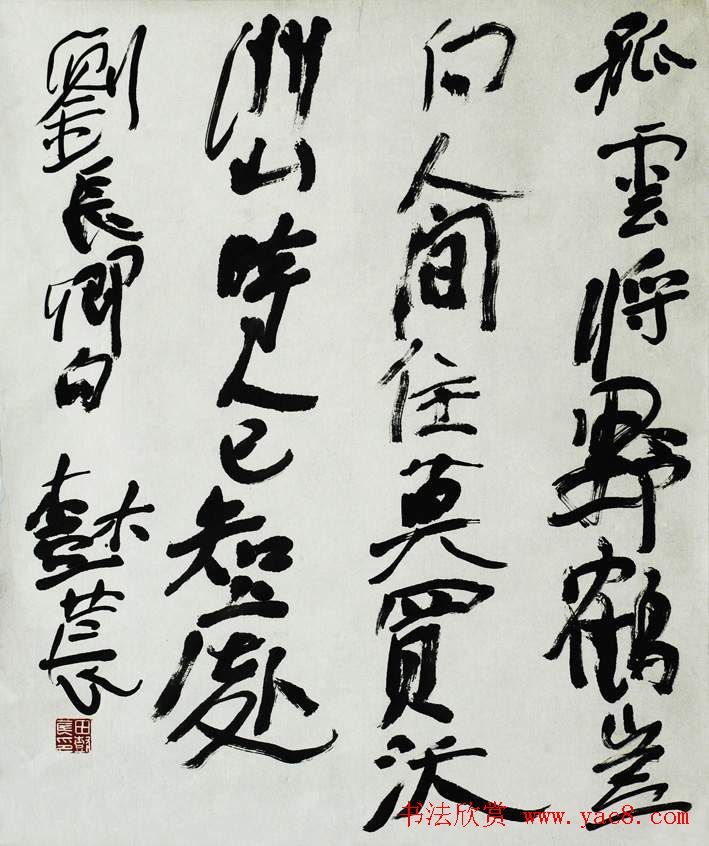 孤雲將野鶴豈
向人間住莫買沃
洲山時人已知處
劉長卿句 樹萇
田樹萇印
书法欣赏 www.yac8.com